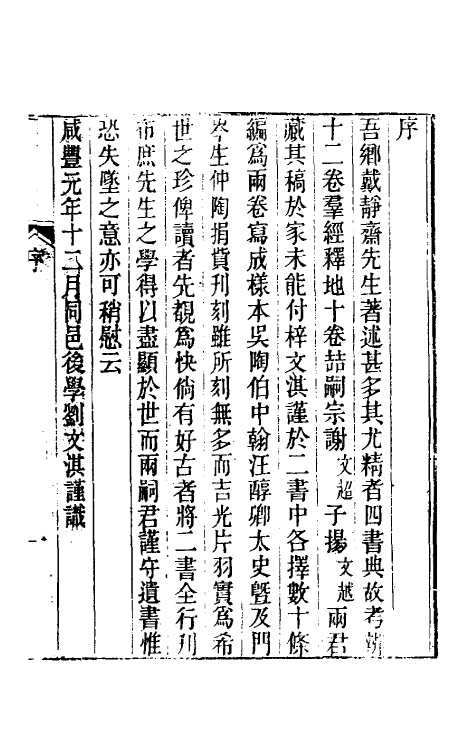 序
吾鄉戴靜齋先生著述甚多其尤精者四書典故考
十二卷羣經釋地十卷喆嗣宗謝文超子揚文越兩君
藏其稿於家未能付梓文淇謹於二書中各擇數十條
編爲兩卷寫成樣本吳陶伯中翰汪醇卿太史曁及門
岑生仲陶捐貲刋刻雖所刻無多而吉光片羽實爲希
世之珍俾讀者先覩爲快倘有好古者將二書全行刋
布庶先生之學得以盡顯於世而兩嗣君謹守遺書惟
恐失墜之意亦可稍慰云
咸豐元年十二月同邑後學劉文淇謹識
序
一